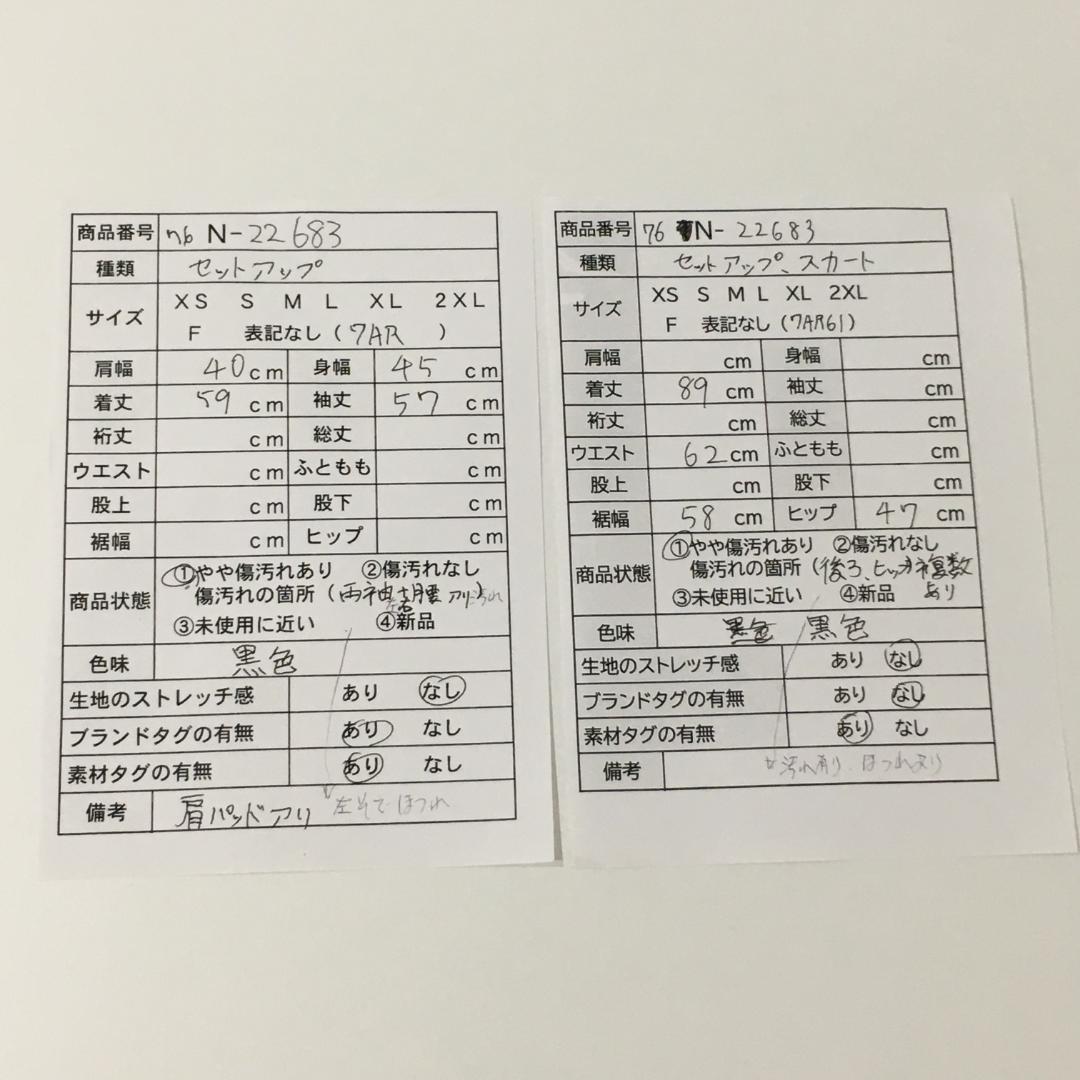 商品番号 76 N-22683
種類 セットアップ
サイズ XS S M L XL 2XL
F 表記なし(7AR )
肩幅 40cm 身幅 45 cm
着丈 59 cm 袖丈 57 cm
裄丈 cm 総丈 cm
ウエスト cm ふともも cm
股上 cm 股下 cm
裾幅 cm ヒップ cm
商品状態 ①やや傷汚れあり ②傷汚れなし
傷汚れの箇所(両袖 左右 アリ汚れ
③未使用に近い ④新品
色味 黒色
生地のストレッチ感 あり なし
ブランドタグの有無 あり なし
素材タグの有無 あり なし
備考 肩パッドアリ 左そでほつれ
商品番号 76 N-22683
種類 セットアップ、スカート
サイズ XS S M L XL 2XL
F 表記なし(7AR61)
肩幅 cm 身幅 cm
着丈 89 cm 袖丈 cm
裄丈 cm 総丈 cm
ウエスト 62cm ふともも cm
股上 cm 股下 cm
裾幅 58 cm ヒップ 47 cm
商品状態 ①やや傷汚れあり ②傷汚れなし
傷汚れの箇所(後ろ、ヒップ 複数
③未使用に近い ④新品 あり
色味 黒色 黒色
生地のストレッチ感 あり なし
ブランドタグの有無 あり なし
素材タグの有無 あり なし
備考 汚れ有り、ほつれ有り